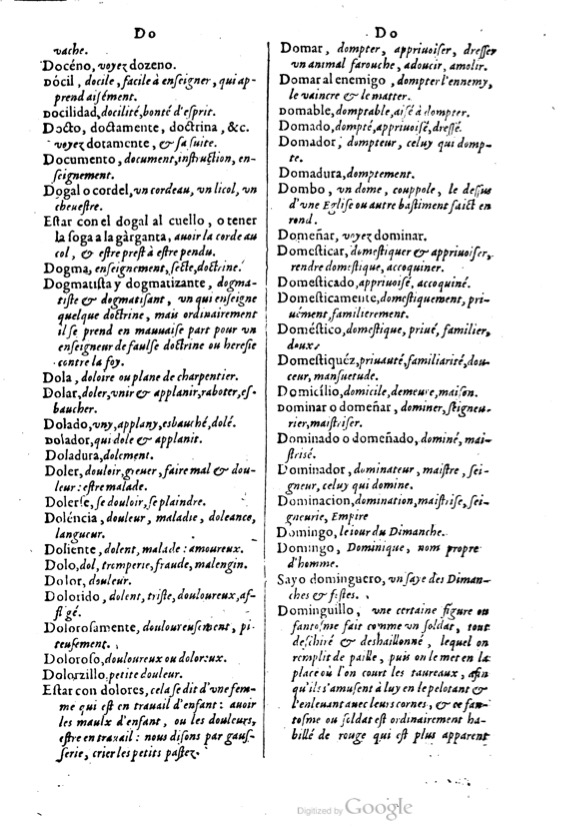 Do
vache.
Docéno, voyez dozeno.
Dócil, docile, facile à enſeigner, qui ap-
prend aiſément.
Docilidad, docilité, bonté d'eſprit.
Docto, doctamente, doctrina, &c.
voyez dotamente, & ſa ſuite.
Documento, document, inſtruction, en-
ſeignement.
Dogal o cordel, vn cordeau, vn licol, vn
cheueſtre.
Eſtar con el dogal al cuello, o tener
la ſoga a la gàrganta, auoir la corde au
col, & eſtre preſt à eſtre pendu.
Dogma, enſeignement, ſecte, doctrine.
Dogmatiſta y dogmatizante, dogma-
tiſte & dogmatiſant, vn qui enſeigne
quelque doctrine, mais ordinairement
il ſe prend en mauuaiſe part pour vn
enſeigneur de faulſe doctrine ou hereſie
contre la foy.
Dola, doloire ou plane de charpentier.
Dolar, doler, vnir & applanir, raboter, eſ-
baucher.
Dolado, vny, applany, esbauché, dolé.
Dolador, qui dole & applanit.
Doladura, dolement.
Doler, douloir, greuer, faire mal & dou-
leur: eſtre malade.
Dolerſe, ſe douloir, ſe plaindre.
Doléncia, douleur, maladie, doleance,
langueur.
Doliente, dolent, malade: amoureux.
Dolo, dol, tromperie, fraude, malengin.
Dolor, douleur.
Dolorido, dolent, triſte, douloureux, af-
fligé.
Doloroſamente, douloureuſement, pi-
teuſement.
Doloroſo, douloureux ou doloreux.
Dolorzillo, petite douleur.
Eſtar con dolores, cela ſe dit d'vne fem-
me qui eſt en trauail d'enfant: auoir
les maulx d'enfant, ou les douleurs,
eſtre en trauail: nous diſons par gauſ-
ſerie, crier les petits paſtez.
Do
Domar, dompter, appriuoiſer, dreſſer
vn animal farouche, adoucir, amolir.
Domar al enemigo, dompter l'ennemy,
le vaincre & le matter.
Domable, domptable, aiſé à dompter.
Domado, dompté, appriuoiſé, dreſſé.
Domador, dompteur, celuy qui domp-
te.
Domadura, domptement.
Dombo, vn dome, couppole, le deſſus
d'vne Egliſe ou autre baſtiment faict en
rond.
Domeñar, voyez dominar.
Domeſticar, domeſtiquer & appriuoiſer,
rendre domeſtique, accoquiner.
Domeſticado, appriuoiſé, accoquiné.
Domeſticamente, domeſtiquement, pri-
uément, familierement.
Doméſtico, domeſtique, priué, familier,
doux.
Domeſtiquéz, priuauté, familiarité, dou-
ceur, manſuetude.
Domicílio, domicile, demeure, maiſon.
Dominar o domeñar, dominer, ſeigneu-
rier, maiſtriſer.
Dominado o domeñado, dominé, mai-
ſtriſé.
Dominador, dominateur, maiſtre, ſei-
gneur, celuy qui domine.
Dominacion, domination, maiſtriſe, ſei-
gneurie, Empire
Domingo, le iour du Dimanche.
Domingo, Dominique, nom propre
d'homme.
Sayo dominguero, vn ſaye des Diman-
ches & feſtes.
Dominguillo, vne certaine figure ou
fantoſme fait comme vn ſoldat, tout
deſchiré & deshaillonné, lequel on
remplit de paille, puis on le met en la
place où l'on court les taureaux, afin
qu'ils s'amuſent à luy en le pelotant &
l'enleuant auec leurs cornes, & ce fan-
toſme ou ſoldat eſt ordinairement ha-
billé de rouge qui eſt plus apparent
Digitized by Google